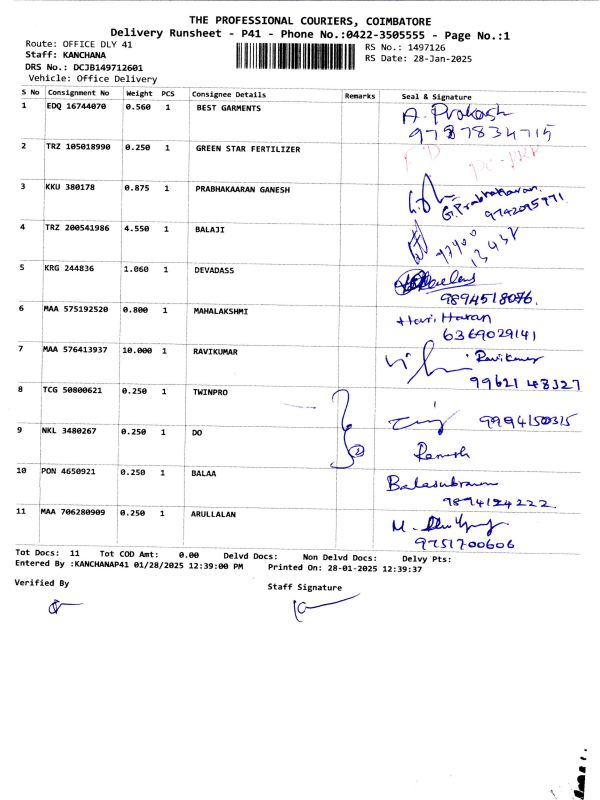 THE PROFESSIONAL COURIERS, COIMBATORE
Delivery Runsheet - P41 - Phone No.:0422-3505555 - Page No.:1
Route: OFFICE DLY 41 RS No.: 1497126
Staff: KANCHANA RS Date: 28-Jan-2025
DRS No.: DCJB149712601
Vehicle: Office Delivery
S No Consignment No Weight PCS Consignee Details Remarks Seal & Signature
1 EDQ 16744070 0.560 1 BEST GARMENTS A. Prakash
9787834715
2 TRZ 105018990 0.250 1 GREEN STAR FERTILIZER
3 KKU 380178 0.875 1 PRABHAKAARAN GANESH G. Prabhakaran.
9742095971
4 TRZ 200541986 4.550 1 BALAJI
5 KRG 244836 1.060 1 DEVADASS
9894518076.
6 MAA 575192520 0.800 1 MAHALAKSHMI Hari, Haran
6369029141
7 MAA 576413937 10.000 1 RAVIKUMAR Ravikumar
99621 48327
8 TCG 50800621 0.250 1 TWINPRO 9994150315
9 NKL 3480267 0.250 1 DO 2 Ramesh
10 PON 4650921 0.250 1 BALAA Balasubramn
9894124222.
11 MAA 706280909 0.250 1 ARULLALAN M.
9751700606
Tot Docs: 11 Tot COD Amt: 0.00 Delvd Docs: Non Delvd Docs: Delvy Pts:
Entered By :KANCHANAP41 01/28/2025 12:39:00 PM Printed On: 28-01-2025 12:39:37
Verified By Staff Signature